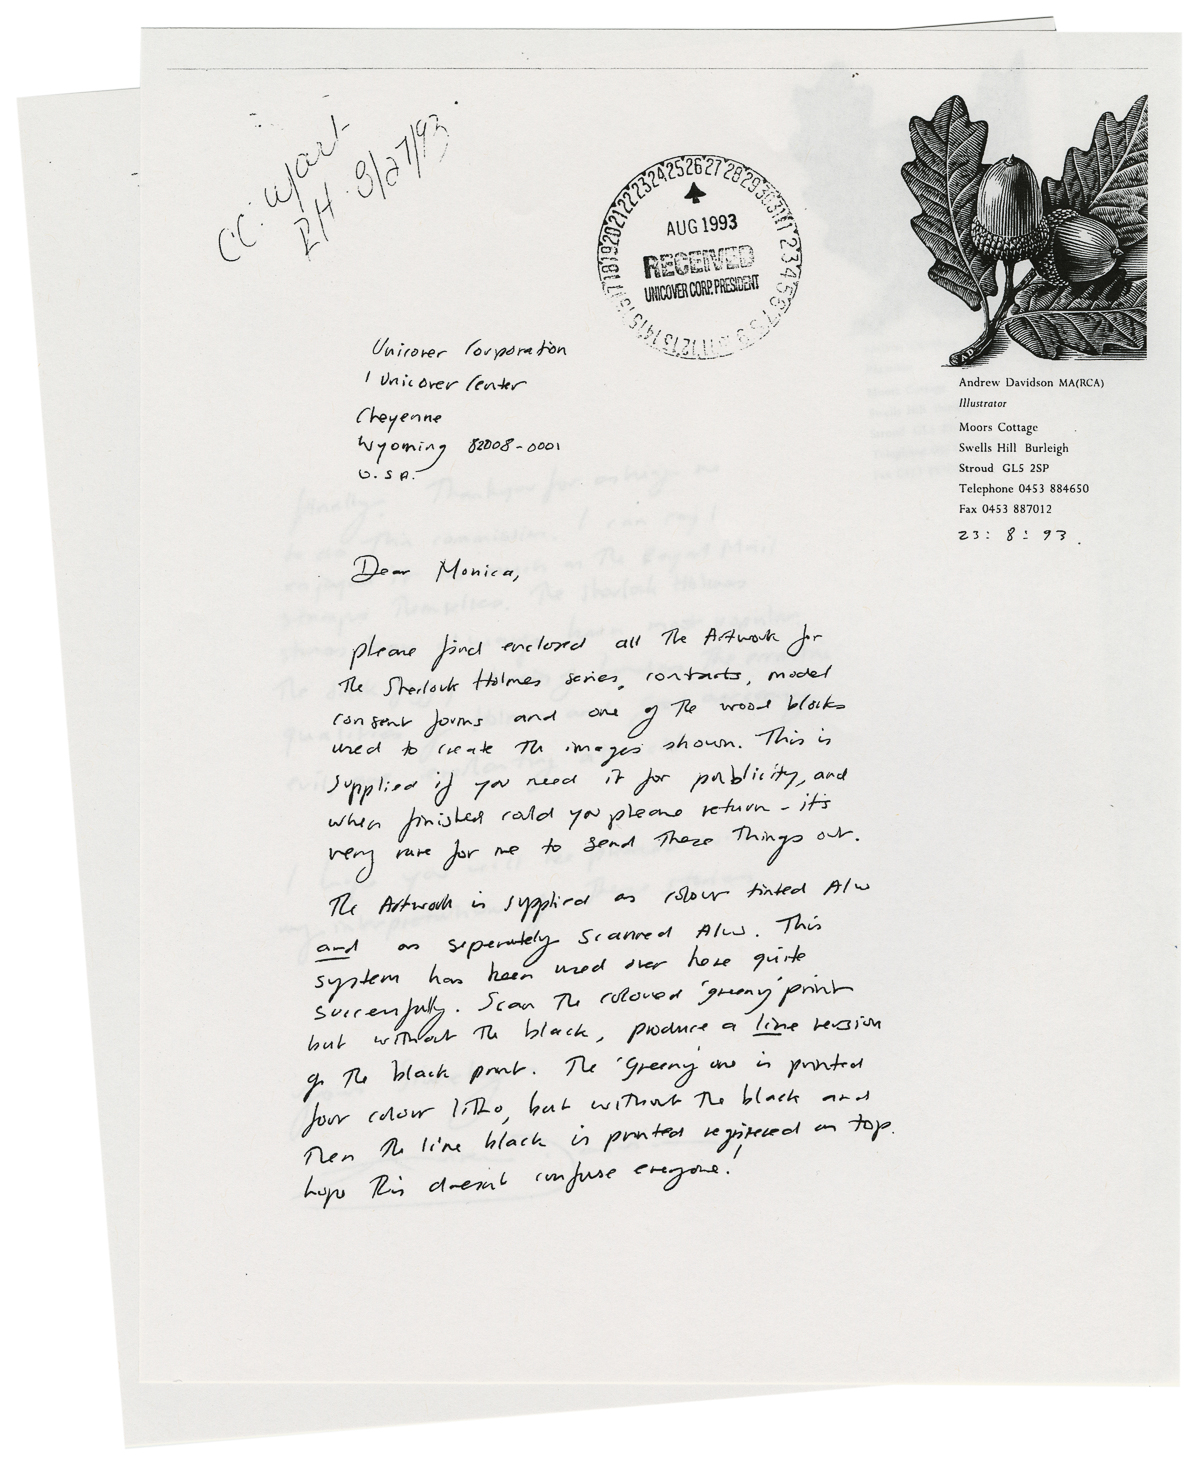 C.C. W/art
RH 8/27/93
17 18 19 20 21 22 23 24 25 26 27 28 29 30 31 1 2 3 4 5 6 7 8 9 11 12 13 14 15
AUG 1993
RECEIVED
UNICOVER CORP. PRESIDENT
RAD
Andrew Davidson MA(RCA)
Illustrator
Moors Cottage
Swells Hill Burleigh
Stroud GL5 2SP
Telephone 0453 884650
Fax 0453 887012
23: 8: 93.
Unicover Corporation
1 Unicover Center
Cheyenne
Wyoming 82008-0001
U.S.A.
Dear Monica,
please find enclosed all The Artwork for
The Sherlock Holmes series, contracts, model
consent forms and one of The wood blocks
used to create The images shown. This is
supplied if you need it for publicity, and
when finished could you please return - it's
very rare for me to send These Things out.
The Artwork is supplied as colour tinted A/w
and as seperately scanned A/w. This
system has been used over here quite
successfully. Scan The coloured 'greeny' print
but without The black, produce a line version
of The black print. The 'Greeny' one is printed
four colour litho, but without The black and
Then The line black is printed registered on top.
hope This doesn't confuse everyone!